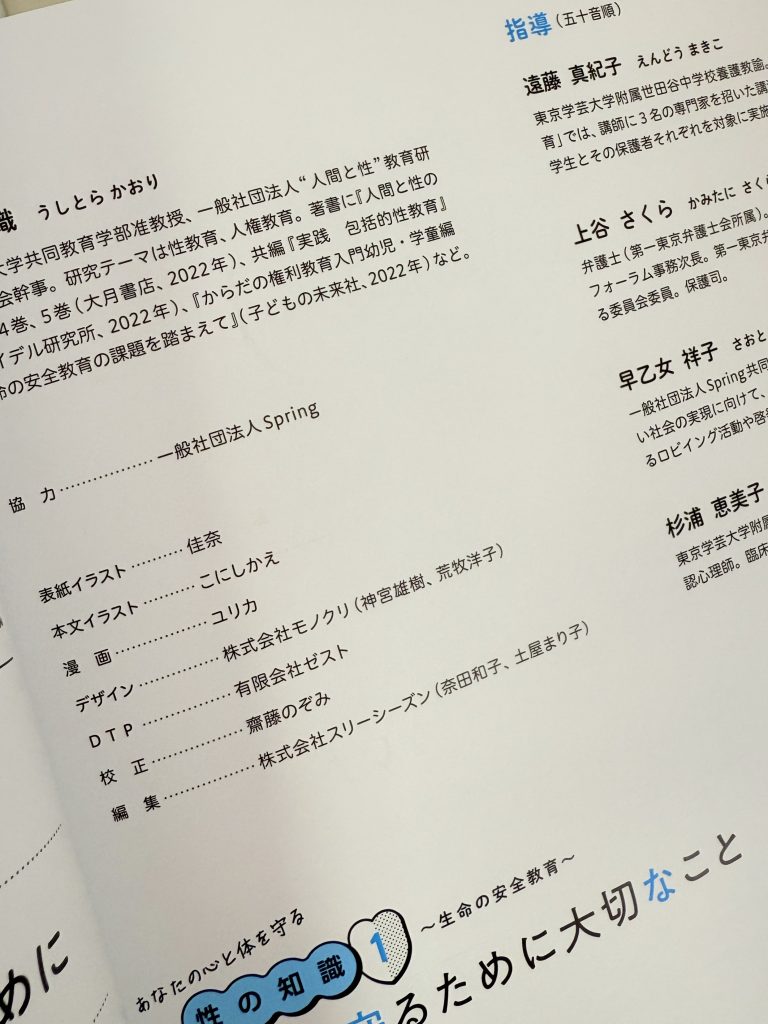 識 うしとら かおり
大学共同教育学部准教授、一般社団法人“人間と性”教育研
会幹事。研究テーマは性教育、人権教育。著書に『人間と性の
4巻、5巻（大月書店、2022年）、共編『実践 包括的性教育』
イデル研究所、2022年）、『からだの権利教育入門幼児・学童編
命の安全教育の課題を踏まえて』（子どもの未来社、2022年）など。
協 力 ………………一般社団法人Spring
表紙イラスト ………… 佳奈
本文イラスト ………… こにしかえ
漫 画 ……………… ユリカ
デザイン ……………… 株式会社モノクリ（神宮雄樹、荒牧洋子）
DTP ……………… 有限会社ゼスト
校 正 ……………… 齋藤のぞみ
編 集 ……………… 株式会社スリーシーズン（奈田和子、土屋まり子）
指導（五十音順）
遠藤 真紀子 えんどう まきこ
東京学芸大学附属世田谷中学校養護教諭。
育」では、講師に3名の専門家を招いた講
学生とその保護者それぞれを対象に実施
上谷 さくら かみたに さくら
弁護士（第一東京弁護士会所属）。
フォーラム事務次長。第一東京弁
る委員会委員。保護司。
早乙女 祥子 さおと
一般社団法人Spring共同
い社会の実現に向けて、
るロビイング活動や啓
杉浦 恵美子
東京学芸大学附属
認心理師。臨床
めに
あなたの心と体を守る
性の知識 1 ～生命の安全教育～
守るために大切なこと